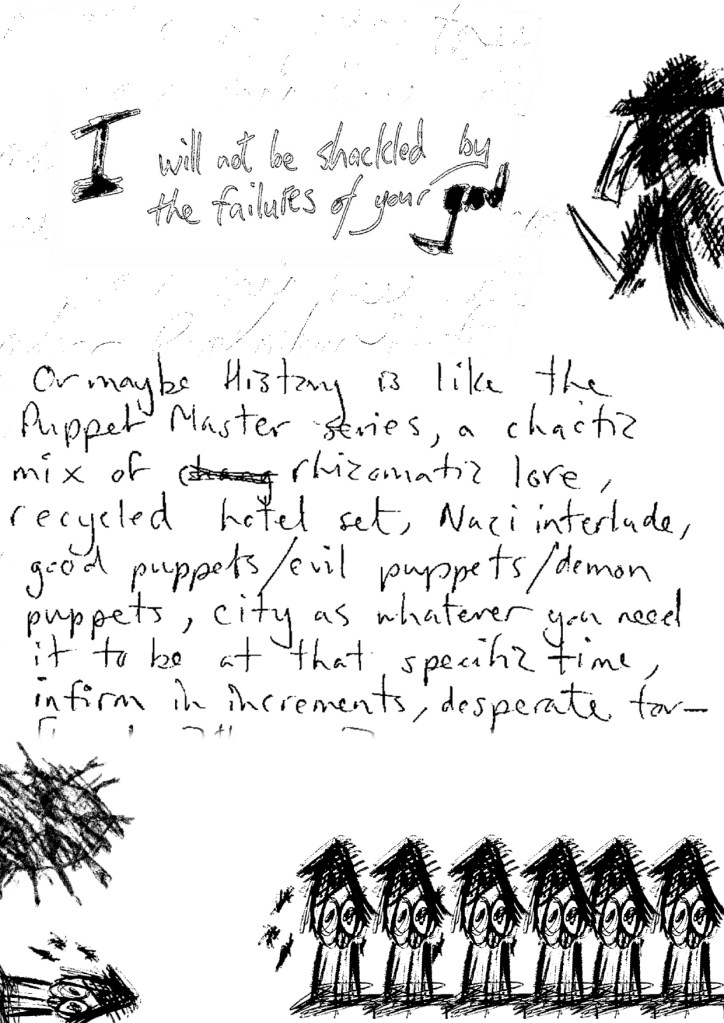 I will not be shackled by
the failures of your god
Or maybe History is like the
Puppet Master series, a chaotic
mix of rhizomatic lore,
recycled hotel set, Nazi interlude,
good puppets/evil puppets/demon
puppets, city as whatever you need
it to be at that specific time,
infirm in increments, desperate for—